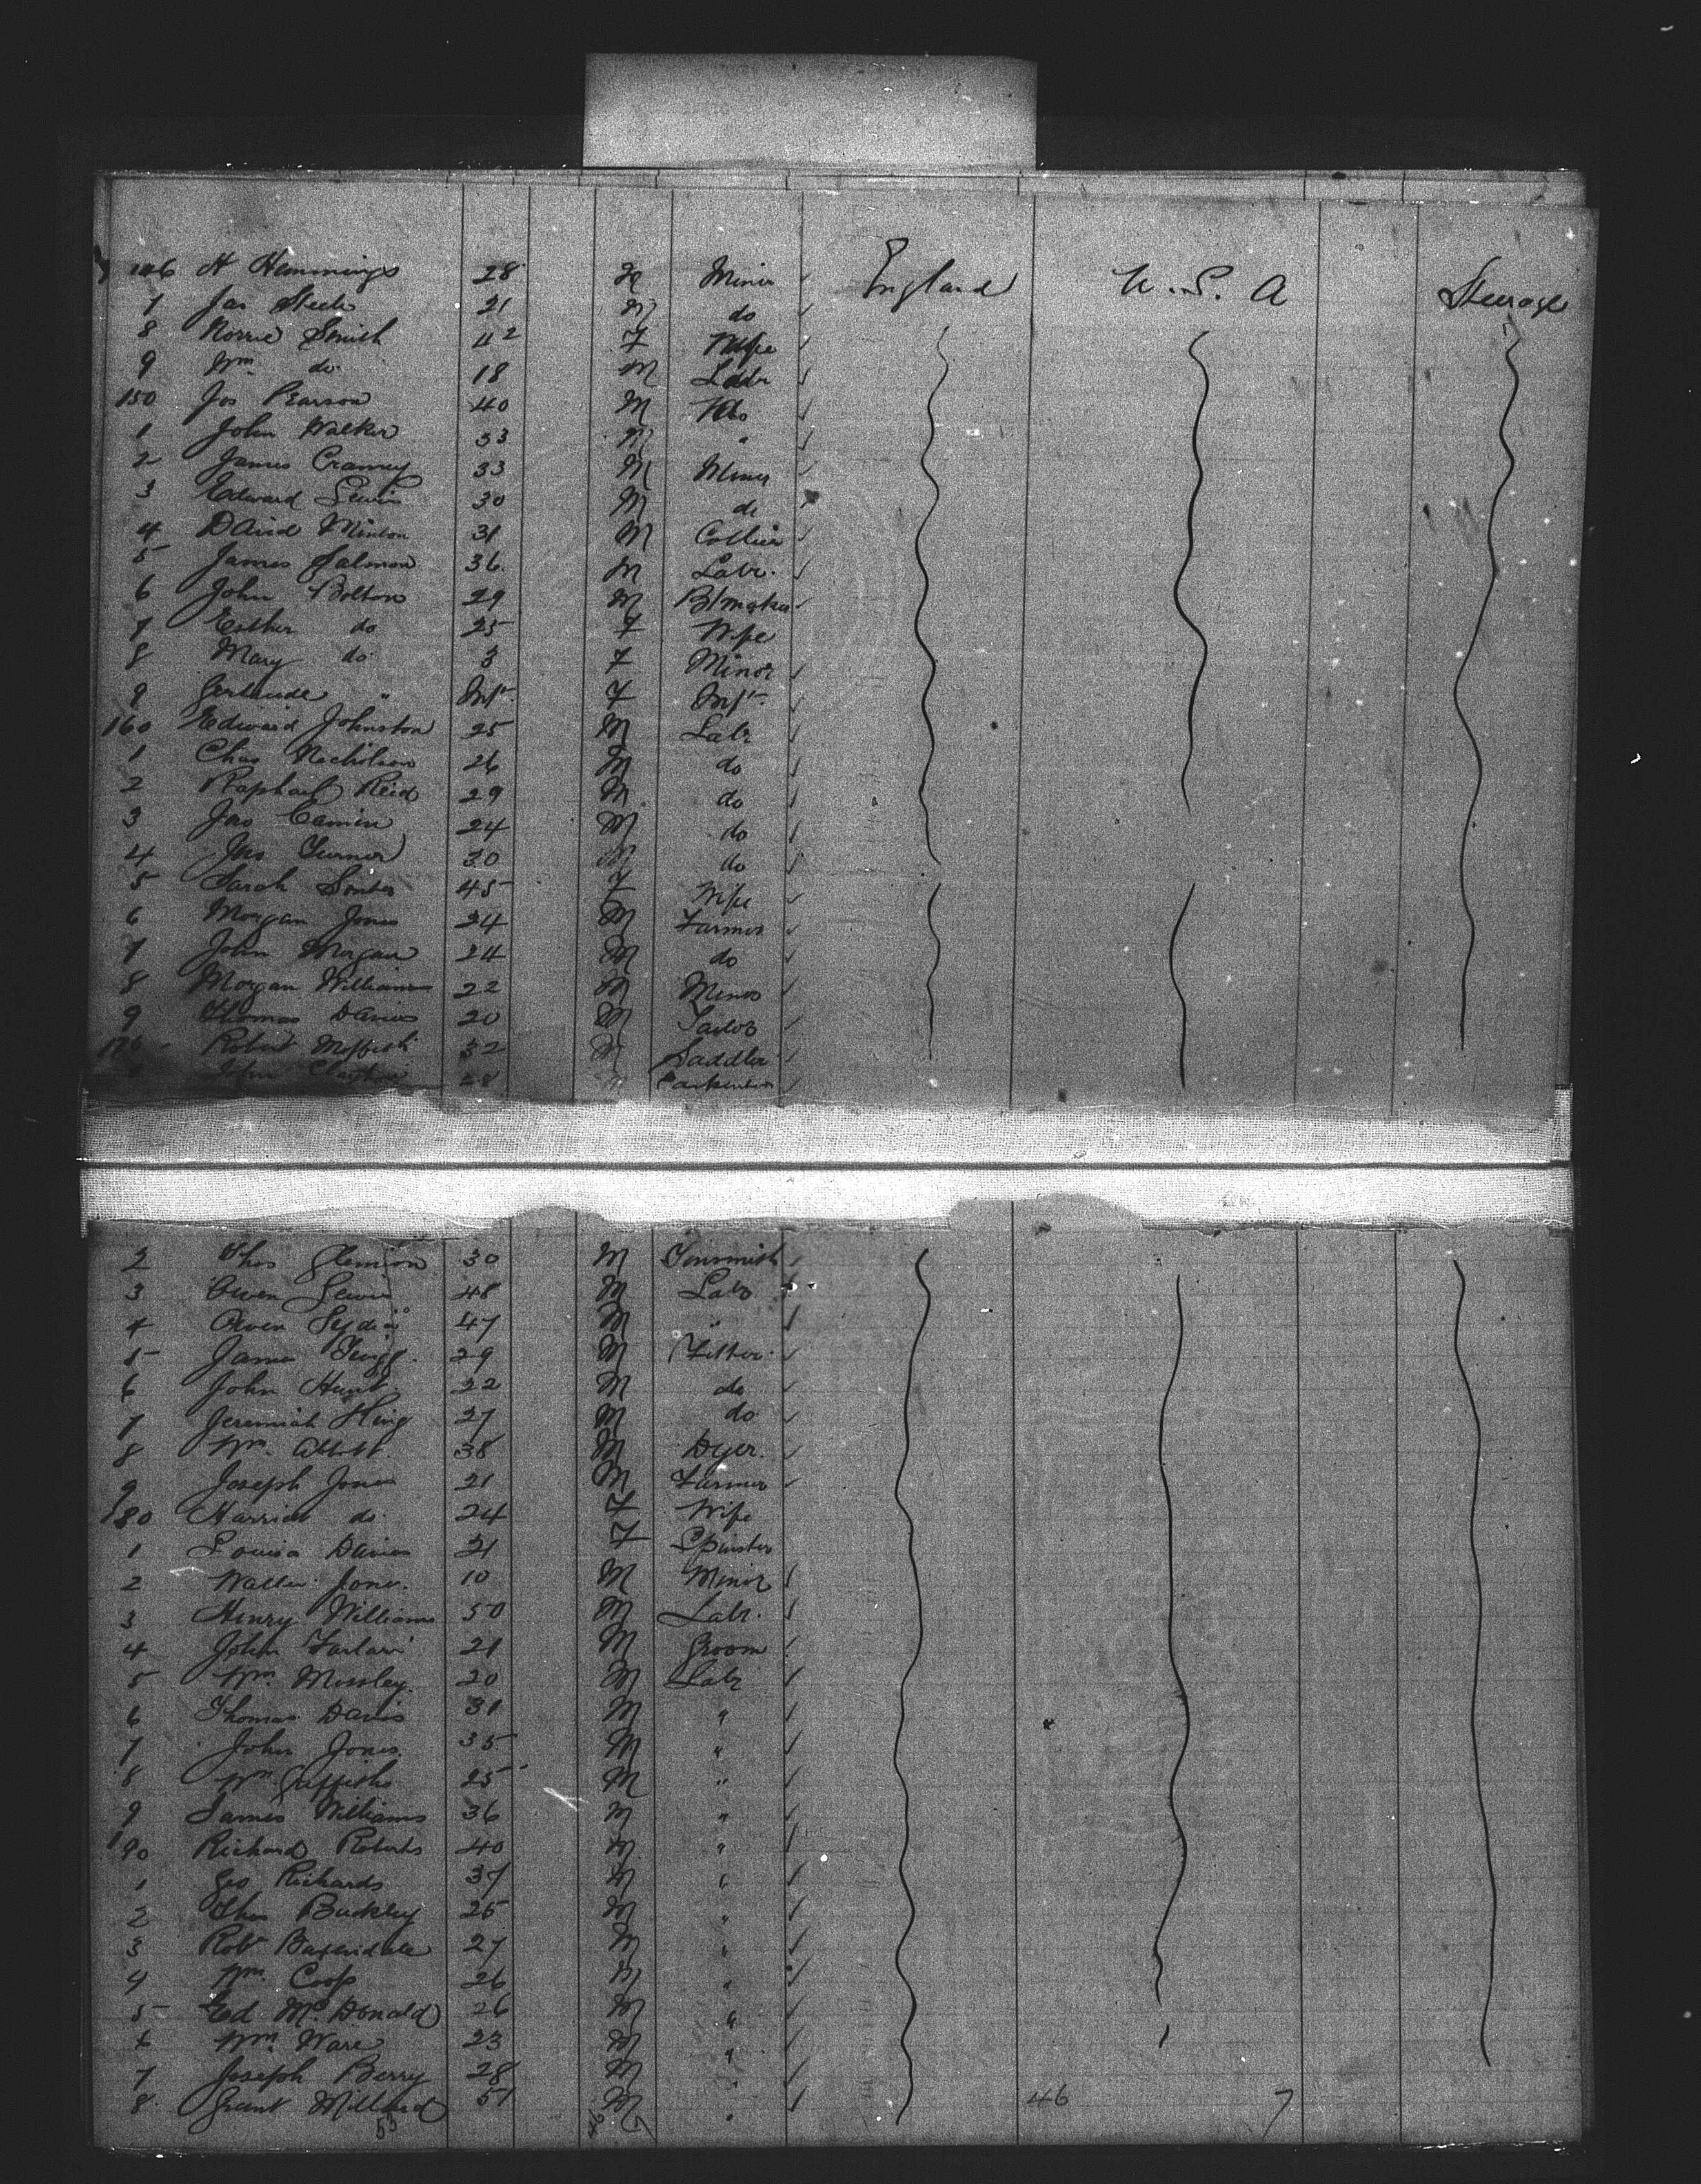 146 H Hemmings 28 M Miner England U.S.A Steerage
7 Jas Steele 21 M do
8 Norrie Smith 42 F Wife
9 Wm do 18 M Labr
150 Jos Pearson 40 M do
1 John Walker 33 M "
2 James Cramey 33 M Miner
3 Edward Lewis 30 M do
4 David Minton 31 M Collier
5 James Salmon 36 M Labr.
6 John Bolton 29 M Btmaker
7 Esther do 25 F Wife
8 Mary do 3 F Minor
9 Gertrude " Inft F Inft
160 Edward Johnston 25 M Labr
1 Chas Nicholson 26 M do
2 Raphael Reid 29 M do
3 Jas 24 M do
4 Jno Turner 30 M do
5 Sarah 45 F Wife
6 Morgan Jones 24 M Farmer
7 John Morgan 24 M do
8 Morgan Williams 22 M Miner
9 Thomas Davies 20 M Sailor
170 Robert 32 M Saddler
John Clayton 28 Carpenter
2 Thos 30 M Tinsmith
3 Owen Lewis 48 M Labr
4 Owen 47 M "
5 James Twigg 29 M Fitter
6 John Hunt 22 M do
7 Jeremiah King 27 M do
8 Wm. Abbott 38 M Dyer.
9 Joseph Jones 21 M Farmer
180 Harriet do 24 F Wife
1 Louisa Davies 21 F Spinster
2 Walter Jones 10 M Minor
3 Henry Williams 50 M Labr.
4 John 21 M Groom
5 Wm. Mossley 20 M Labr
6 Thomas Davies 31 M "
7 John Jones 35 M "
8 Wm Griffiths 25 M "
9 James Williams 36 M "
190 Richard Roberts 40 M "
1 Geo Richards 37 M "
2 Thos Buckley 25 M "
3 Robt Baxendale 27 M "
4 Wm. Coop 26 M "
5 Ed McDonald 26 M "
6 Wm. Ware 23 M "
7 Joseph Berry 28 M "
8 Grant Millard 51 M " 46 7
53 46 7